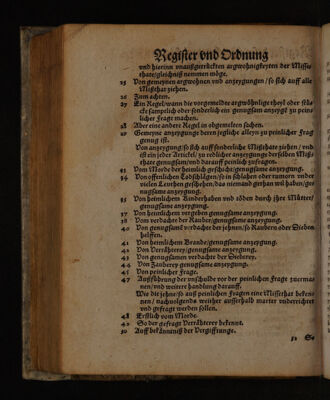 Register vnd Ordnung
vnd hierinn vnaußgetrückten argwonigkeyten der Misse-
thate/gleichniß nemmen möge.
25 Von gemeynen argwohnen vnd anzeygungen / so sich auff alle
Missethat ziehen.
26 Zum achten.
27 Ein Regel/wann die vorgemeldte argwöhnlige theyl oder stück
samptlich oder sonderlich ein genugsam anzeygt zu peinli-
cher Frage machen.
28 Aber eine andere Regel in obgemelten sachen.
29 Gemeyne anzeygunge deren jegliche alleyn zu peinlicher Frag
genug ist.
Von anzeygung/so sich auff sonderliche Missethate ziehen / vnd
ist ein jeder Articfel/ zu redlicher anzeygunge derselben Miß-
thate genugsam/vnd darauff peinlich zufragen.
33 Von Morde der heimlich geschicht/genugsame anzeygung.
34 Von offentlichen Todtschlägen/ so in schlahen oder rumorn vnder
vielen Leuthen geschehen/das niemand gethan wil haben/ge-
nugsame anzeygung.
35 Von heimlichem Kinderhaben vnd tödten durch jhre Mütter/
genugsame anzeygung.
37 Von heimlichem vergeben genugsame anzeygung.
38 Vom verdachte der Rauber/genugsame anzeygung.
40 Von genugsame verdachte der jehnen/so Raubern oder Dieben
helffen.
41 Von heimlichem Brande/genugsame anzeygung.
42 Von Verrähterey/genugsame anzeygung.
43 Von genugsamen verdachte der Dieberey.
44 Von Zauberey genugsame anzeygung.
45 Von peinlicher Frage.
47 Außführung der vnschulde vor der peinlichen Frage zuerma-
nen/vnd weitere handlung darauff.
Wie die jehne/so auß peinlichen Fragen eine Missethat beken-
nen / nachuolgends weither ausserhalb marter vnderrichtet
vnd gefragt werden sollen.
48 Erstlich vom Morde.
49 So der gefragt Verrähterey bekennt.
50 Auff bekänntniß der Vergifftunge.
51 So